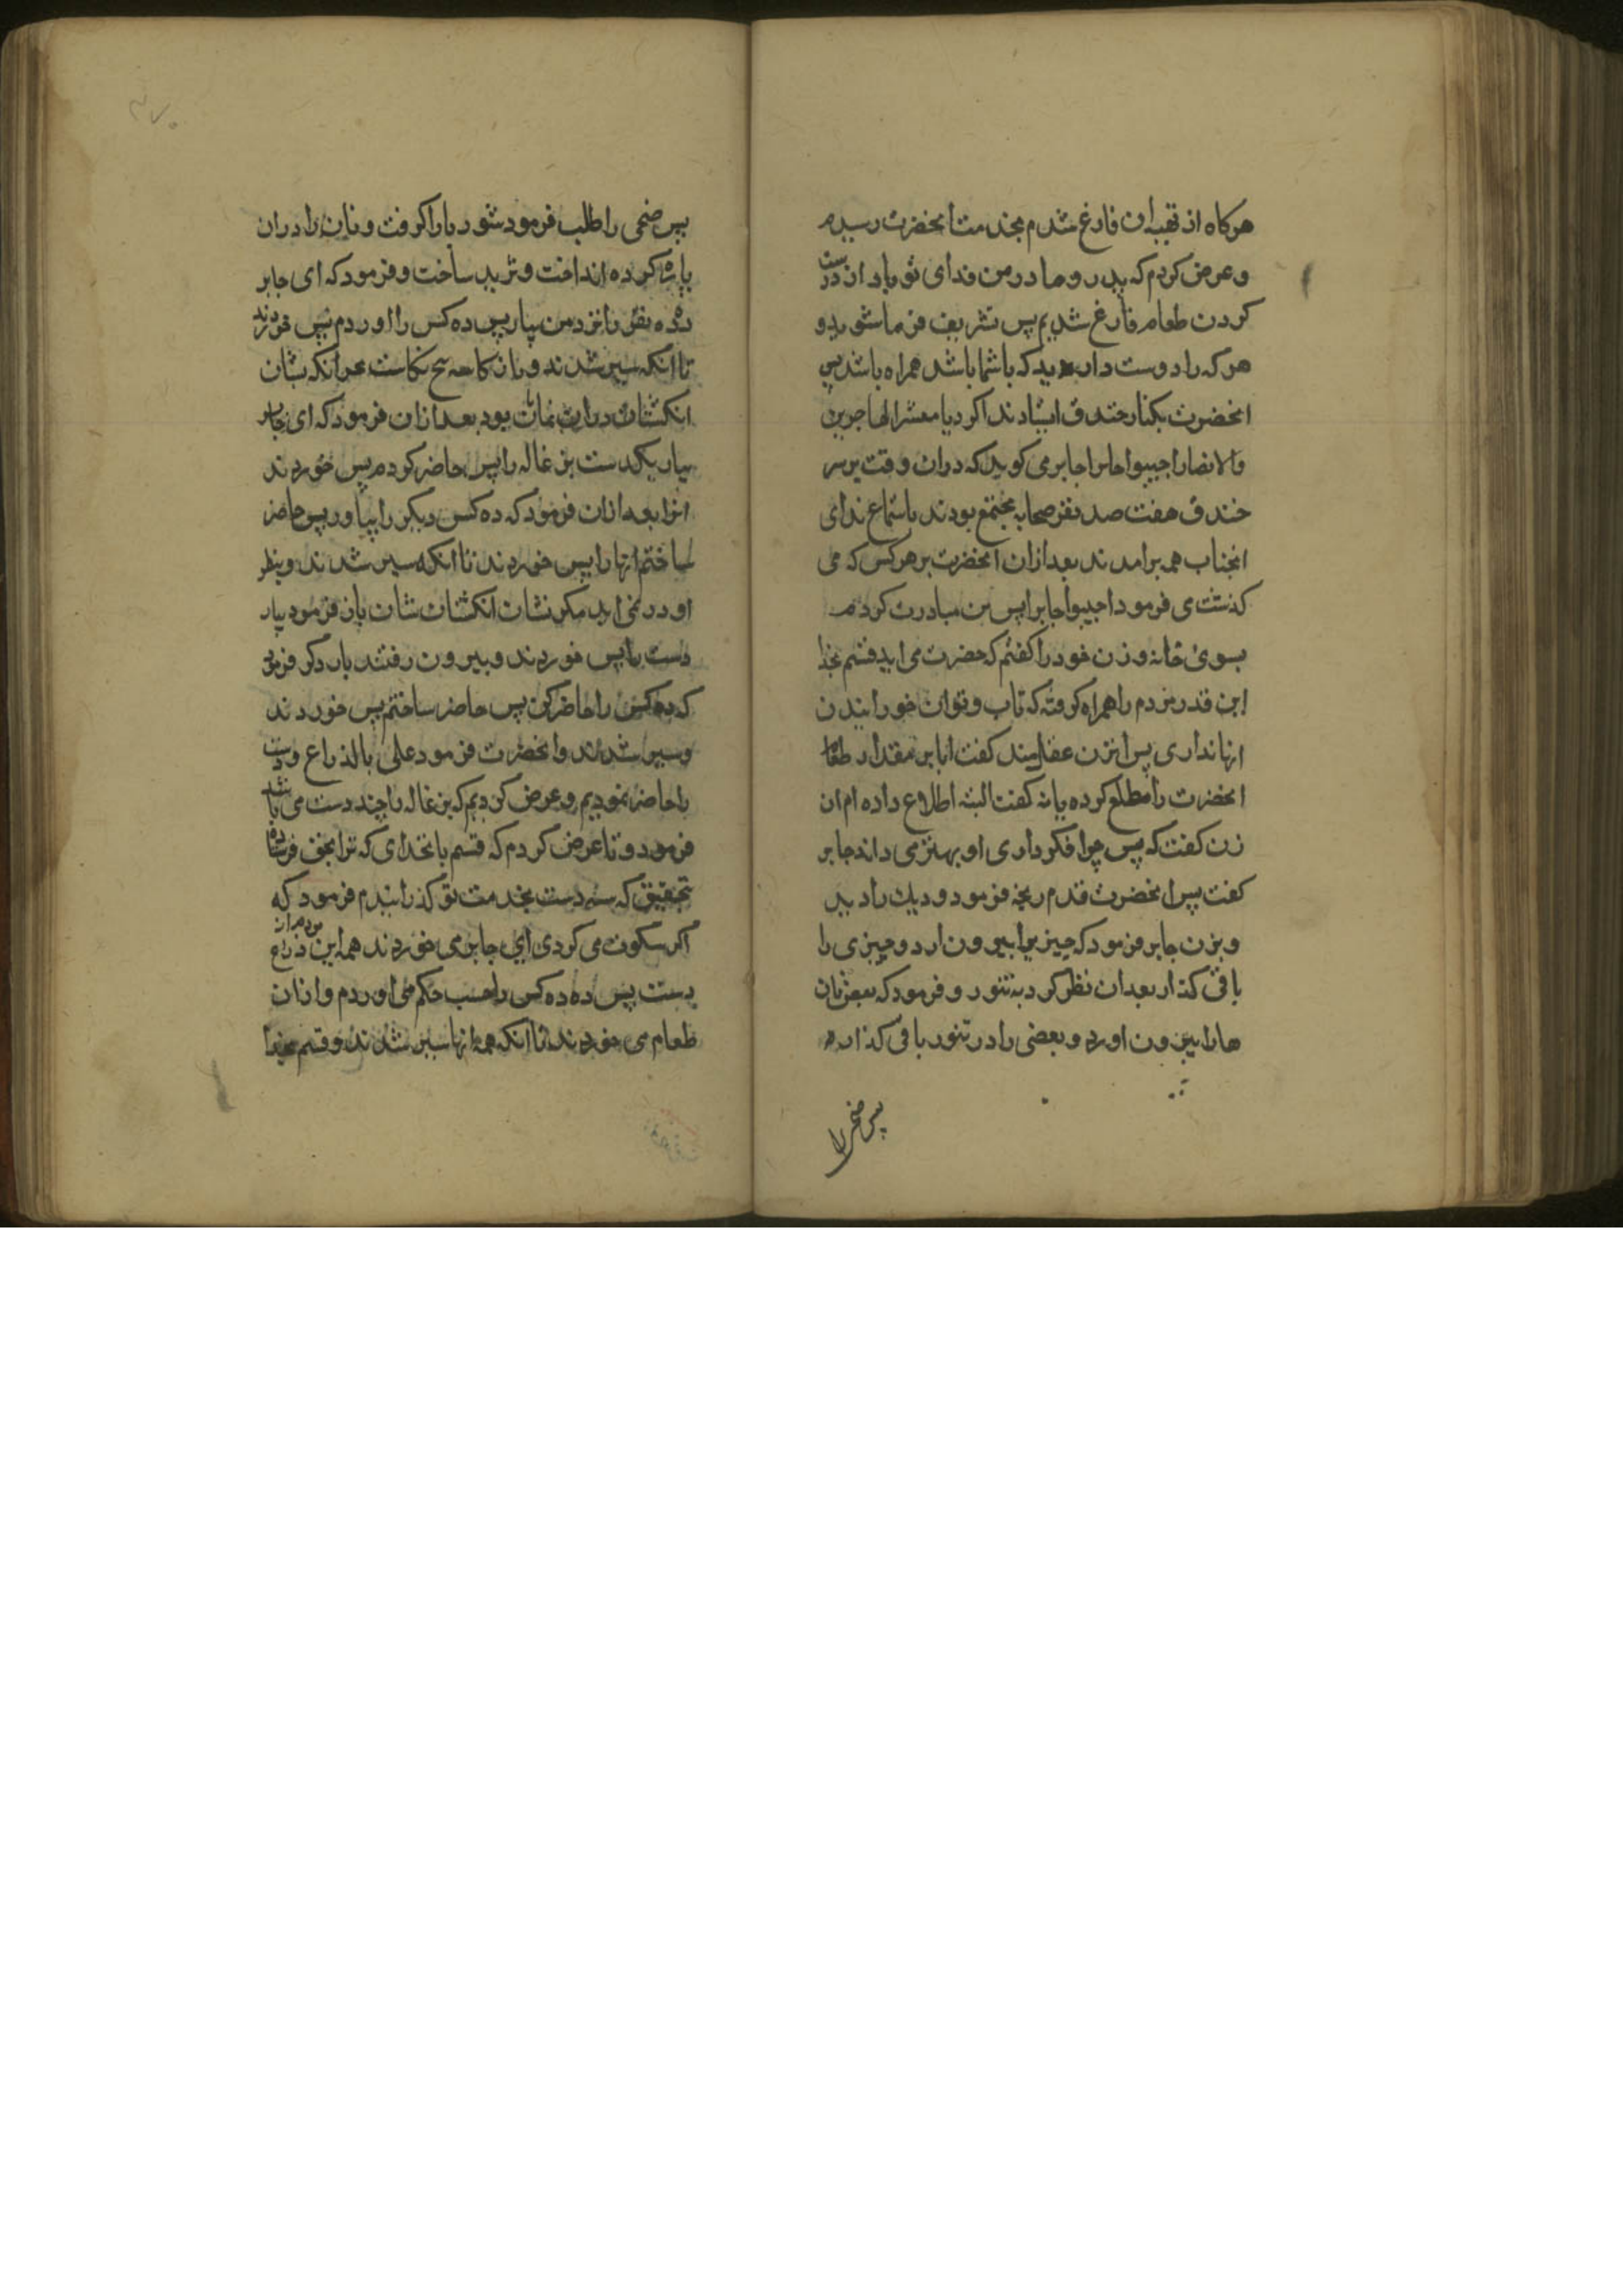 هرکاه از تهیه ان فارغ شدم بخدمت انحضرت رسیدم
و عرض کردم که پدر و مادر من فدای تو باد از درست
کردن طعام فارغ شدیم پس تشریف فرما شوید و
هر که را دوست دارید که باشما باشد همراه باشد پس
انحضرت بکنار خندق ایستادند یا معشر المهاجرین
والانصار اجیبوا جابرا جابر می کوید که دران وقت بر سر
خندق هفت صد نفر صحابه مجتمع بودند باستماع ندای
انجناب همه برامدند بعد ازان انحضرت بر هر کس که می
کذشت می فرمود اجیبوا جابرا پس من مبادرت کردم
بسوی خانه و زن خود را کفتم که حضرت می اید قسم بخدا
این قدر مردم را همراه کرفته که تاب و توان خورانیدن
انها نداری پس ان زن عقلمند کفت ایا بر مقدار طعام
انحضرت را مطلع کرده یا نه کفت البته اطلاع داده ام ان
زن کفت که پس چرا فکر داری او بهتر می داند جابر
کفت پس انحضرت قدم رنجه فرمود و دیك را دید
و بزن جابر فرمود که چیزیرا بیرون ار و چیزی را
باقی کذار بعد ان نظر کرد به تنور و فرمود که بعض نان
ها را بیرون اورد و بعضی را در تنور باقی کذارد
پس صحن را
۴۷۰
پس صحنی را طلب فرمود شوربا را کرفت و نان را دران
پاره کرده انداخت و ثرید ساخت و فرمود که ای جابر
ده ده نفر را نزد من بیار پس ده کس را اوردم پس خوردند
تا انکه سیر شدند و نکاست انکه نشان
انکشتان دران نمایان بود بعد ازان فرمود که ای جابر
بیار یکدست بزغاله را پس حاضر کردم پس خوردند
انرا بعد ازان فرمود که ده کس دیکر را بیاور پس حاضر
ساختم انها را پس خوردند تا انکه سیر شدند و بنظر
او در نمی اید مکر نشان انکشتان شان باز فرمود بیار
دست را پس خوردند و بیرون رفتند بار دکر فرمود
که ده کس را حاضر کن پس حاضر ساختم پس خوردند
و سیر شدند و انحضرت فرمود علی بالذراع و دست
را حاضر نمودیم و عرض کردیم که بزغاله را چند دست می باشد
فرمود دو تا عرض کردم که قسم باخدای که ترا بحق فرستاده
بتحقیق که سه دست بخدمت تو کذرانیدم فرمود که
اکر سکوت می کردی ای جابر می خوردند همه مردم از این ذراع
بست پس ده ده کس را حسب حکم می اوردم و ازان
طعام می خوردند تا انکه همه انها سیر شدند و قسم بخدا